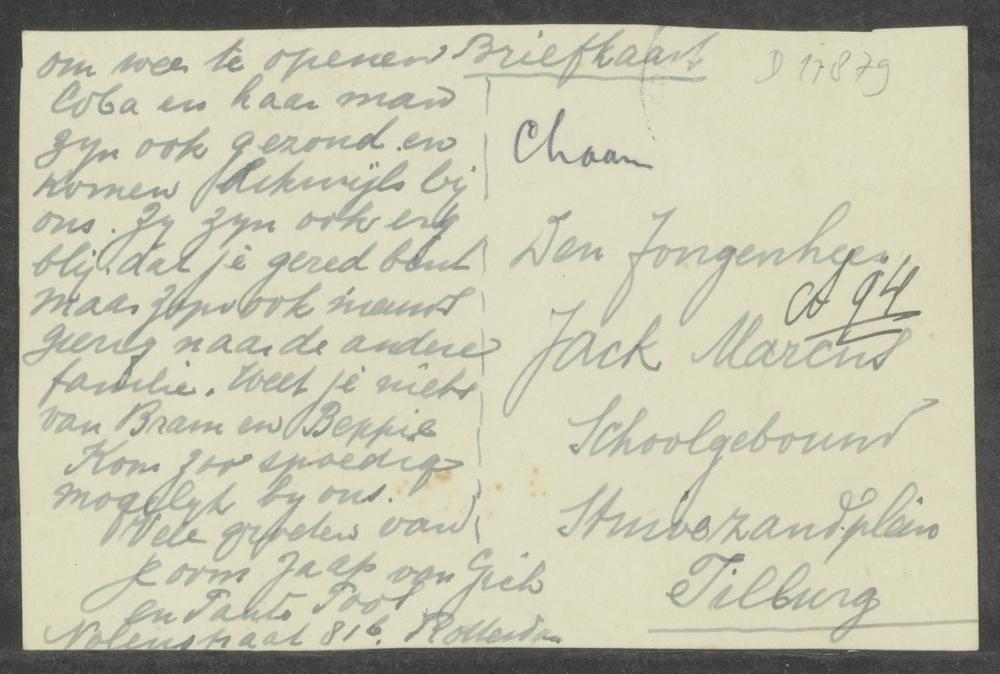 om weer te openen
Coba en haar man
zyn ook gezond en
komen dikwijls bij
ons. Zy zyn ook erg
blij dat je gered bent
maar zyn ook nieuws
gierig naar de andere
familie. Weet je niets
van Bram en Beppie
Kom zoo spoedig
mogelyk by ons.
Vele groeten van
je oom Jaap van Gich
en Tante Tool
Nolenstraat 81b. Rotterdam
Briefkaart
D 17879
Chaam
Den Jongenheer
Ct 94
Jack Marcus
Schoolgebouw
Stuivezandplein
Tilburg